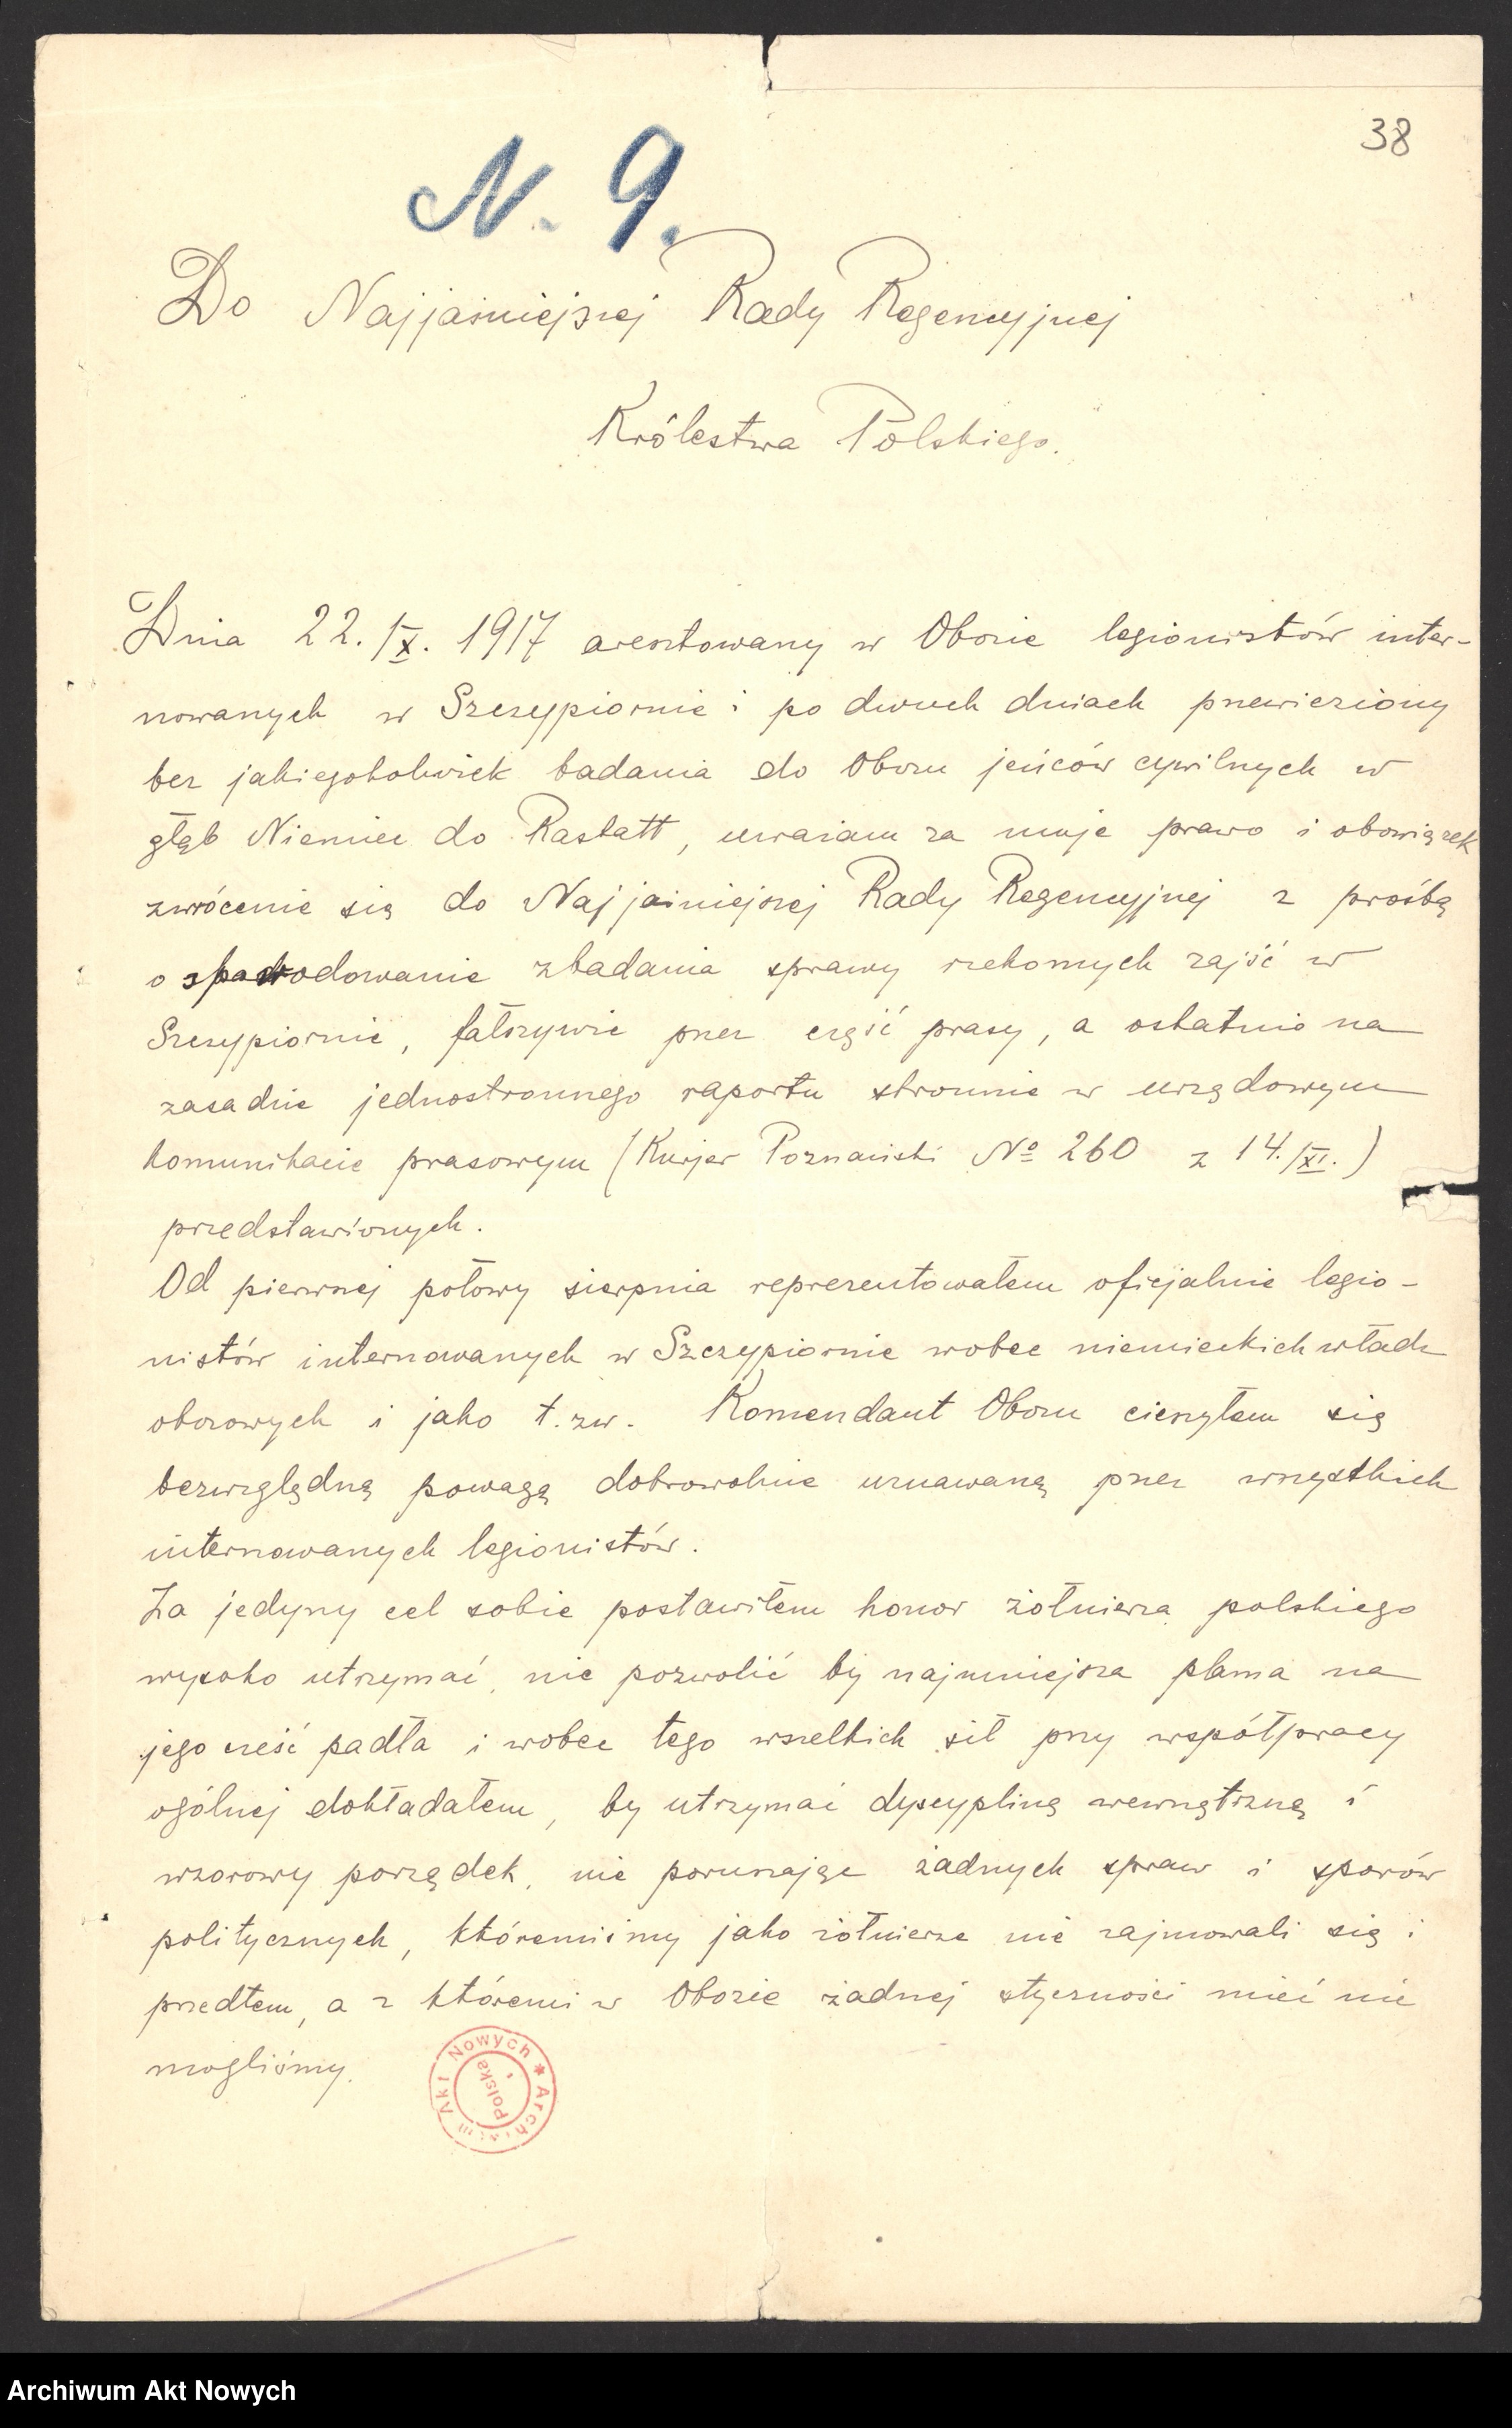 38
N. 9.
Do Najjaśniejszej Rady Regencyjnej
Królestwa Polskiego.
Dnia 22./X. 1917 aresztowany w Obozie legionistów inter-
nowanych w Szczypiornie i po dwuch dniach przewieziony
bez jakiegokolwiek badania do Obozu jeńców cywilnych w
głąb Niemiec do Rastatt, uważam za moje prawo i obowiązek
zwrócenie się do Najjaśniejszej Rady Regencyjnej z prośbą
o spowodowanie zbadania sprawy rzekomych zajść w
Szczypiornie, fałszywie przez część prasy, a ostatnio na
zasadzie jednostronnego raportu stronnie w urzędowym
komunikacie prasowym (Kurjer Poznański No 260 z 14./XI.)
przedstawionych.
Od pierwszej połowy sierpnia reprezentowałem oficjalnie legio-
nistów internowanych w Szczypiornie wobec niemieckich władz
obozowych i jako t. zw. Komendant Obozu cieszyłem się
bezwzględną powagą dobrowolnie uznawaną przez wszystkich
internowanych legionistów.
Za jedyny cel sobie postawiłem honor żołnierza polskiego
wysoko utrzymać, nie pozwolić by najmniejsza plama na
jego cześć padła i wobec tego wszelkich sił przy współpracy
ogólnej dokładałem, by utrzymać dyscyplinę wewnętrzną i
wzorowy porządek, nie poruszając żadnych spraw i sporów
politycznych, któremiśmy jako żołnierze nie zajmowali się i
przedtem, a z któremi w Obozie żadnej styczności mieć nie
mogliśmy.
Archiwum Akt Nowych
Polska
Archiwum Akt Nowych